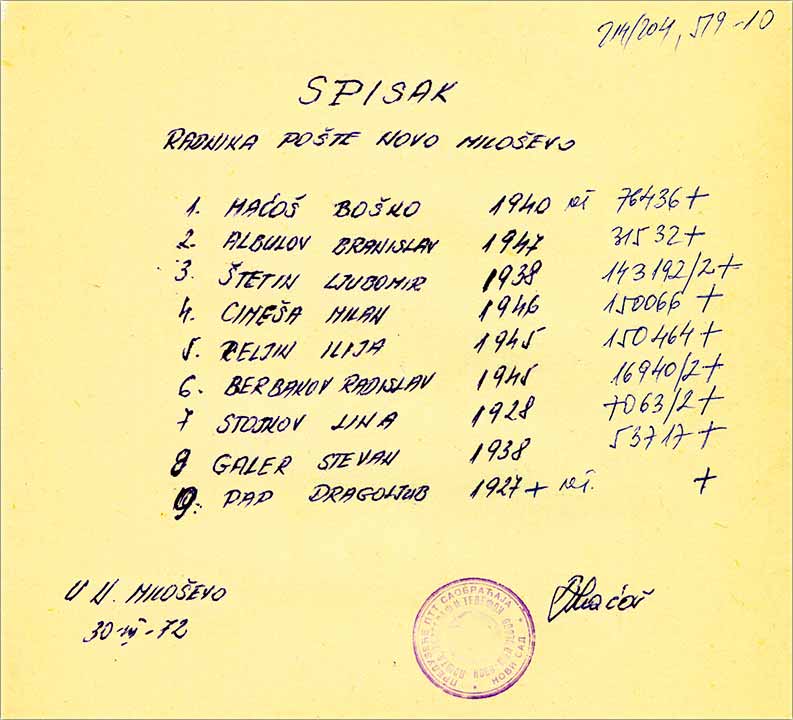 214/204, 519-10
SPISAK
RADNIKA POŠTE NOVO MILOŠEVO
1. MAĆOŠ BOŠKO 1940 76436+
2. ALBULOV BRANISLAV 1947 31532+
3. ŠTETIN LJUBOMIR 1938 143192/2+
4. CIMEŠA MILAN 1946 150066 +
5. RELJIN ILIJA 1945 150464+
6. BERBAKOV RADISLAV 1945 16940/2+
7 STOJKOV LINA 1928 7063/2+
8 GALER STEVAN 1938 53717+
9. PAP DRAGOLJUB 1927+ +
U N. MILOŠEVO
30-VI-72
Maćoš
ПРЕДУЗЕЋЕ ПТТ САОБРАЋАЈА
НОВИ САД